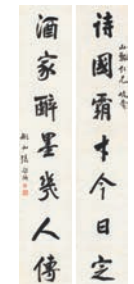 詩國霸才今日定
酒家醉墨幾人傳